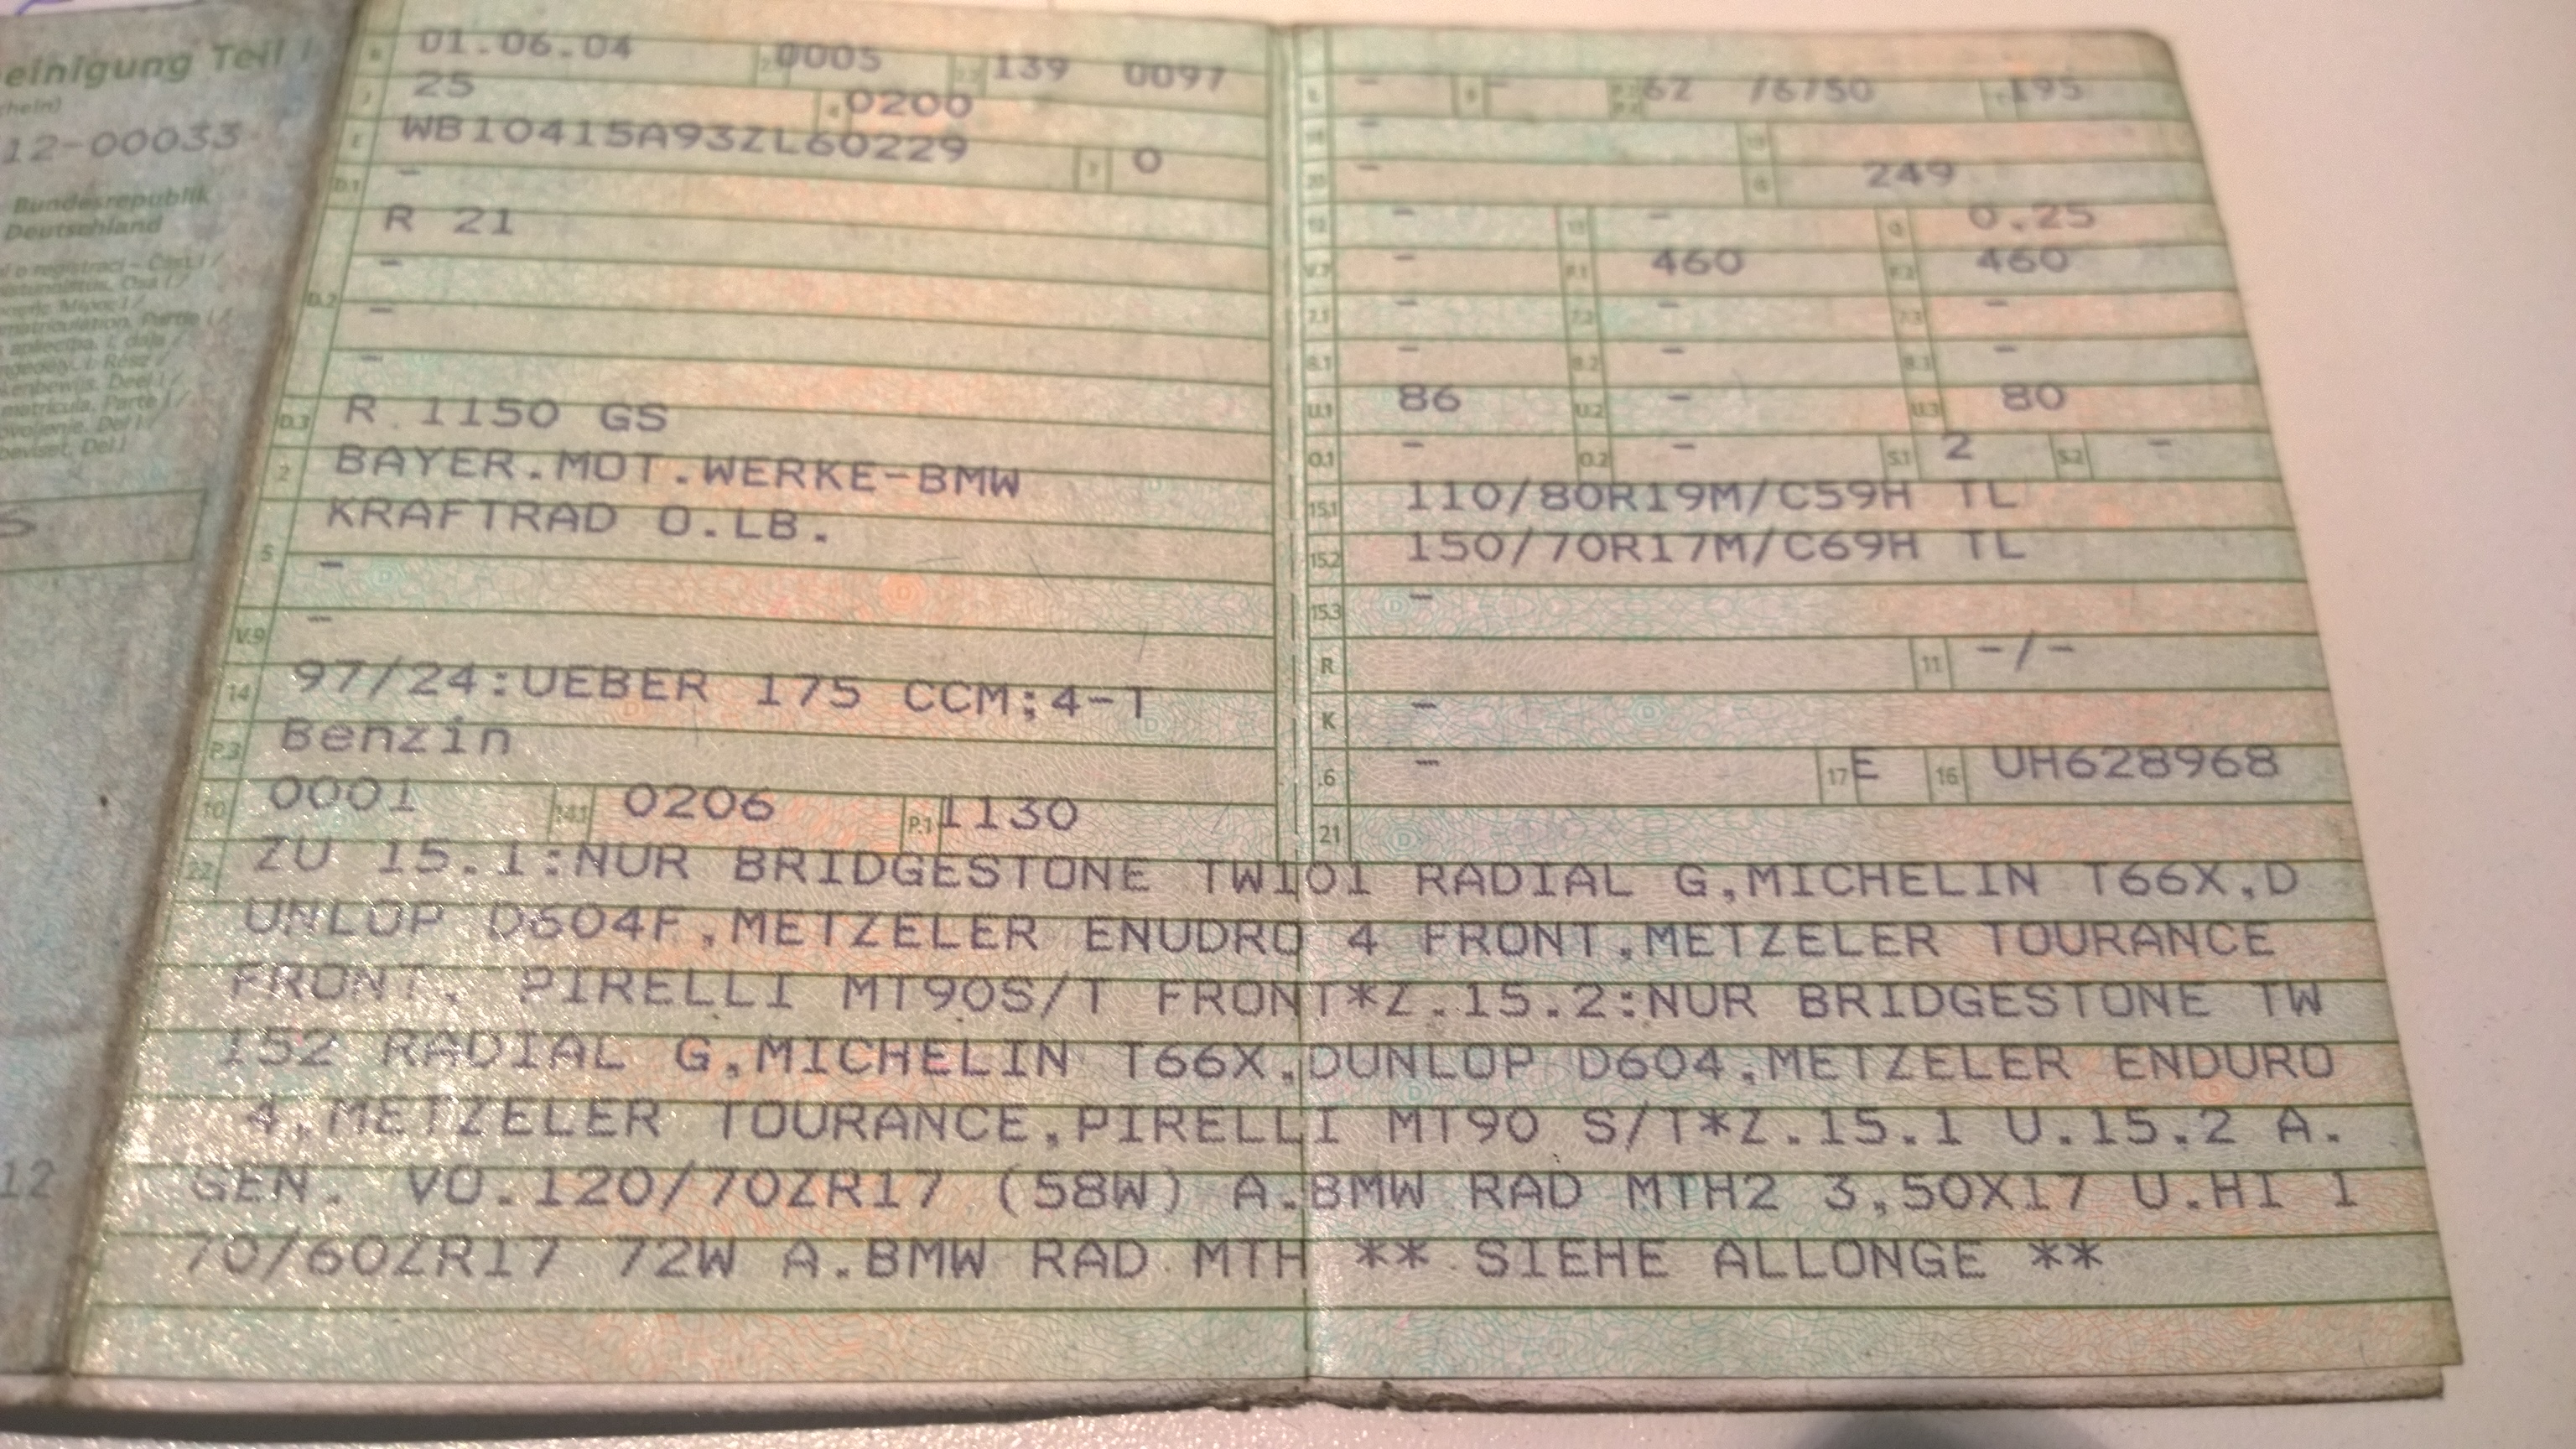 einigung Teil I
12-00033
Bundesrepublik
Deutschland
01.06.04 0005 139 0097
25 0200
E WB10415A93ZL60229 3 0
D.1 -
R 21
-
D.2 -
-
D.3 R 1150 GS
2 BAYER.MOT.WERKE-BMW
5 KRAFTRAD O.LB.
-
V.9 -
14 97/24:UEBER 175 CCM;4-T
P.3 Benzin
10 0001 14.1 0206 P.1 1130
- - 62 /6750 195
-
- G 249
- - 0.25
V.7 - F.1 460 F.2 460
7.1 - 7.2 - 7.3 -
8.1 - 8.2 - 8.3 -
U.1 86 U.2 - U.3 80
O.1 - O.2 - S.1 2 S.2 -
15.1 110/80R19M/C59H TL
15.2 150/70R17M/C69H TL
15.3 -
R 11 -/-
K -
.6 - 17 E 16 UH628968
21
22 ZU 15.1:NUR BRIDGESTONE TW101 RADIAL G,MICHELIN T66X,D
UNLOP D604F,METZELER ENUDRO 4 FRONT,METZELER TOURANCE
FRONT, PIRELLI MT90S/T FRONT*Z.15.2:NUR BRIDGESTONE TW
152 RADIAL G,MICHELIN T66X,DUNLOP D604,METZELER ENDURO
4,METZELER TOURANCE,PIRELLI MT90 S/T*Z.15.1 U.15.2 A.
GEN. VO.120/70ZR17 (58W) A.BMW RAD MTH2 3,50X17 U.HI 1
70/60ZR17 72W A.BMW RAD MTH ** SIEHE ALLONGE **
12